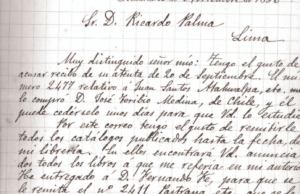 Sr. D. Ricardo Palma
Lima
Muy distinguido señor mio: tengo el gusto de
acusar recibo de su atenta de 20 de Septiembre. El nu-
mero 2477 relativo á Juan Santos Atahualpa, etc., me
lo compró D. José Toribio Medina, de Chile, y él
puede cedérselo unos dias para que Vd. lo estudie.
Por este correo tengo el gusto de remitirle
todos los catálogos publicados hasta la fecha, de
mi librería. En ellos encontrará Vd. anuncia-
dos todos los libros á que me referia en mi anterior
He entregado á D. Fernando Fé, para que se
le remita el nº 2411